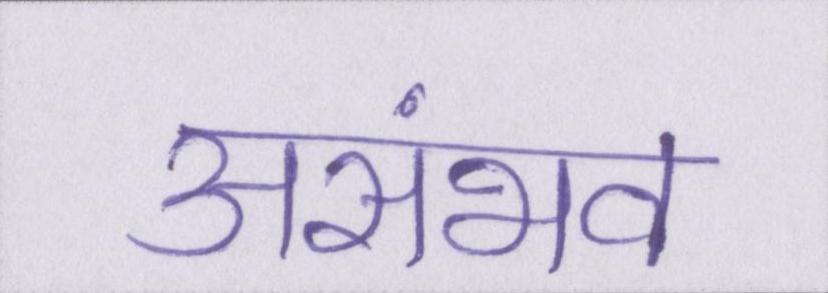 असंभव